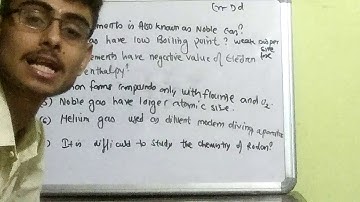 Gr-18
elements is Also known as Noble Gas?
gas have low Boiling point? weak disper
sive
force
elements have negative value of Electron
enthalpy?
non forms compounds only with flourine and O2.
5) Noble gas have larger atomic size.
6) Helium gas used as diluent modern diving apparatus
) It is difficult to study the chemistry of Radon?